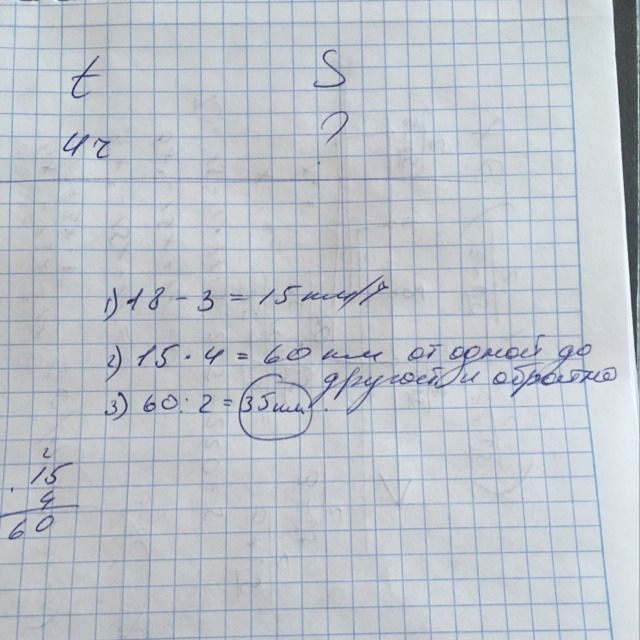 t S
4ч ?
1) 18 - 3 = 15 км/ч
2) 15 · 4 = 60 км от одной до
другой и обратно
3) 60 : 2 = 35 км.
2
· 15
4
60